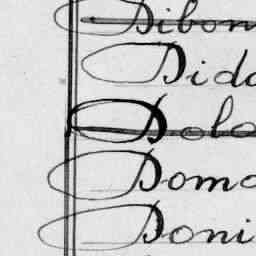 Dibon
Dida
Dolo
Doma
Doni